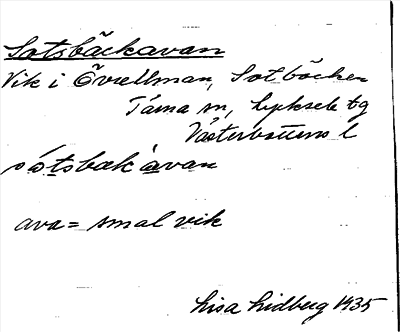 Sotsbäckavan
Vik i Övrellman, Sotbäcken
Tärna sn, Lycksele tg
Västerbottens l
sótsbæk àvan
ava = smal vik
Lisa Lidberg 1935